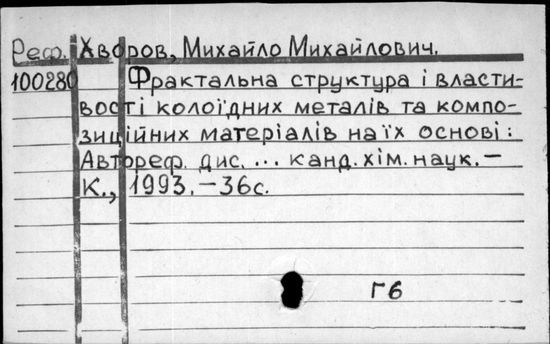 Реф. Хворов, Михайло Михайлович.
100280 Фрактальна структура і власти-
вості колоїдних металів та компо-
зиційних матеріалів на їх основі:
Автореф. дис. ... канд. хім. наук. –
К., 1993. – 36с.
Г6